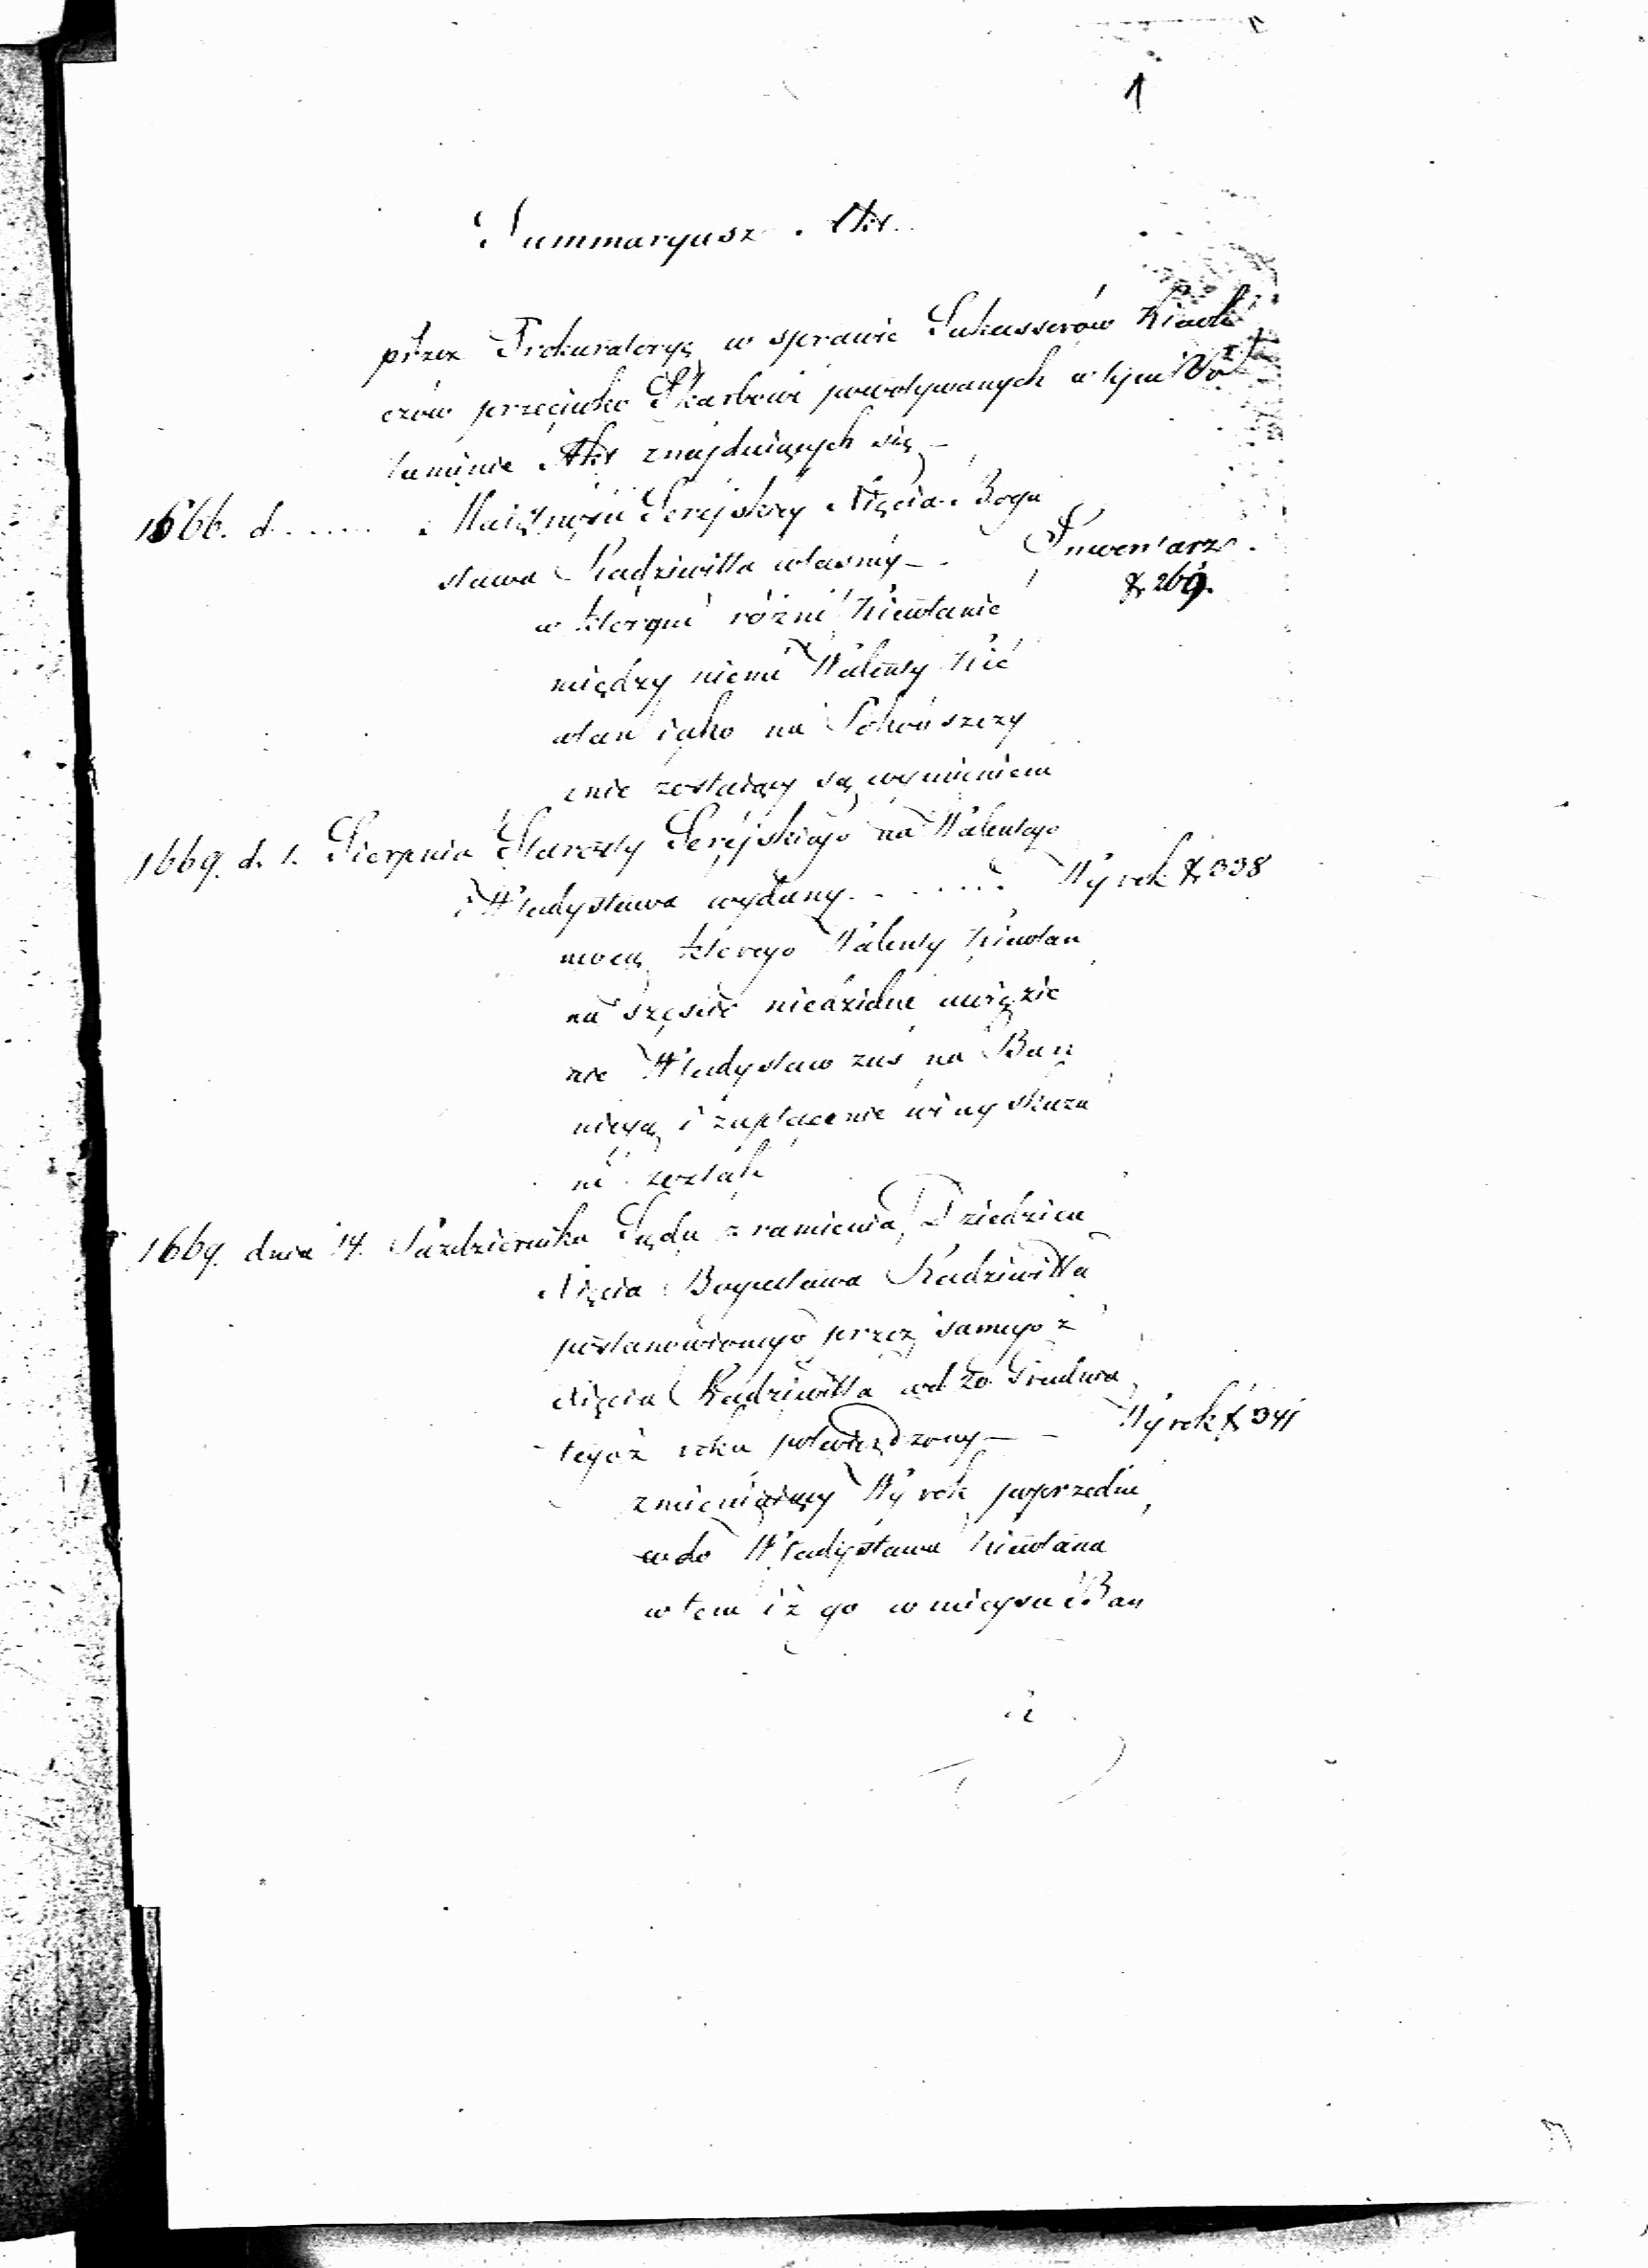 1
Summaryusz Akt.
przez Prokuratoryą w sprawie Sukcessorów Kiewli
czów przeciwko Skarbowi powoływanych w tym Vo
luminie Akt znajduiących się –
1666. d. . . . . . Maiętności Serejskiey Xięcia Bogu
sława Radziwiłła własney – . Inwentarz .
269.
w którym różni Kiewłanie
między niemi Walenty Kie
włan iako na
nie zostaiący są wymienieni
1669. d. 1. Sierpnia Starosty Serejskiego na Walentego
i Władysława wydany . . . . . . Wyrok 338
mocą którego Walenty Kiewłan
na sześć niedzielne uwięzie
nie Władysław zaś na Ban
nicyą i zapłacenie winy skaza
ni zostali
1669. dnia 14. Października Sądu z ramienia Dziedzica
Xięcia Bogusława Radziwiłła
postanowionego przez samego ż
Xięcia Radziwiłła d. 20 Grudnia
tegoż roku potwierdzony – – Wyrok 341
zmieniaiący Wyrok poprzedni
co do Władysława Kiewłana
w tem iż go w mieysce Ban